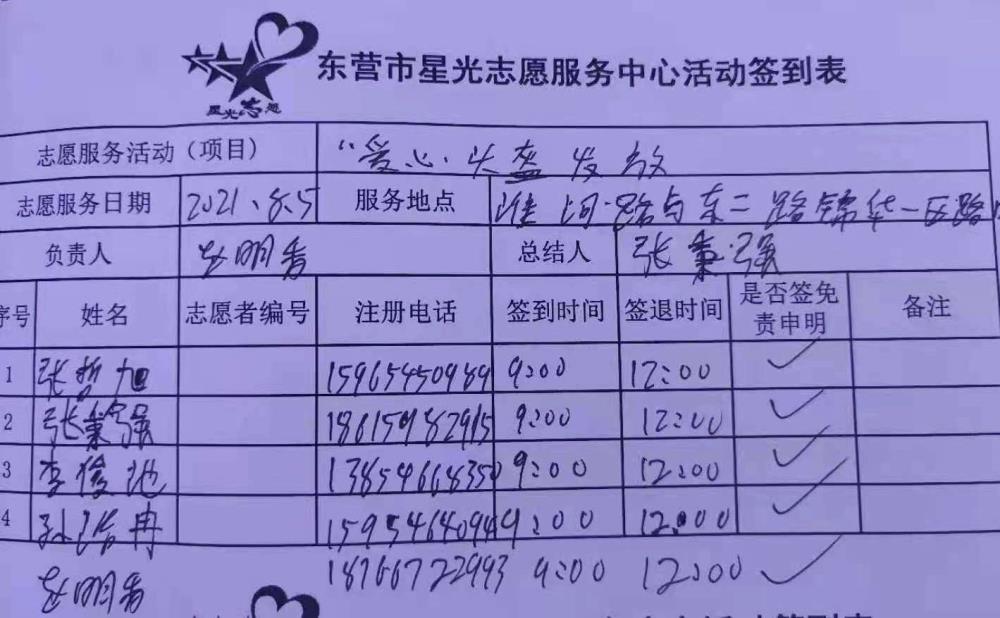 星光志愿
东营市星光志愿服务中心活动签到表
志愿服务活动（项目） “爱心·头盔发放
志愿服务日期 2021.8.5 服务地点 淮河路与东二路锦华一区路
负责人 赵明香 总结人 张秉强
序号 姓名 志愿者编号 注册电话 签到时间 签退时间 是否签免责申明 备注
1 张哲旭 15965450989 9:00 12:00 ✓
2 张秉强 18615982915 9:00 12:00 ✓
3 李俊池 13854668350 9:00 12:00 ✓
4 孙浩冉 15954640949 9:00 12:00 ✓
赵明香 18766722993 9:00 12:00 ✓